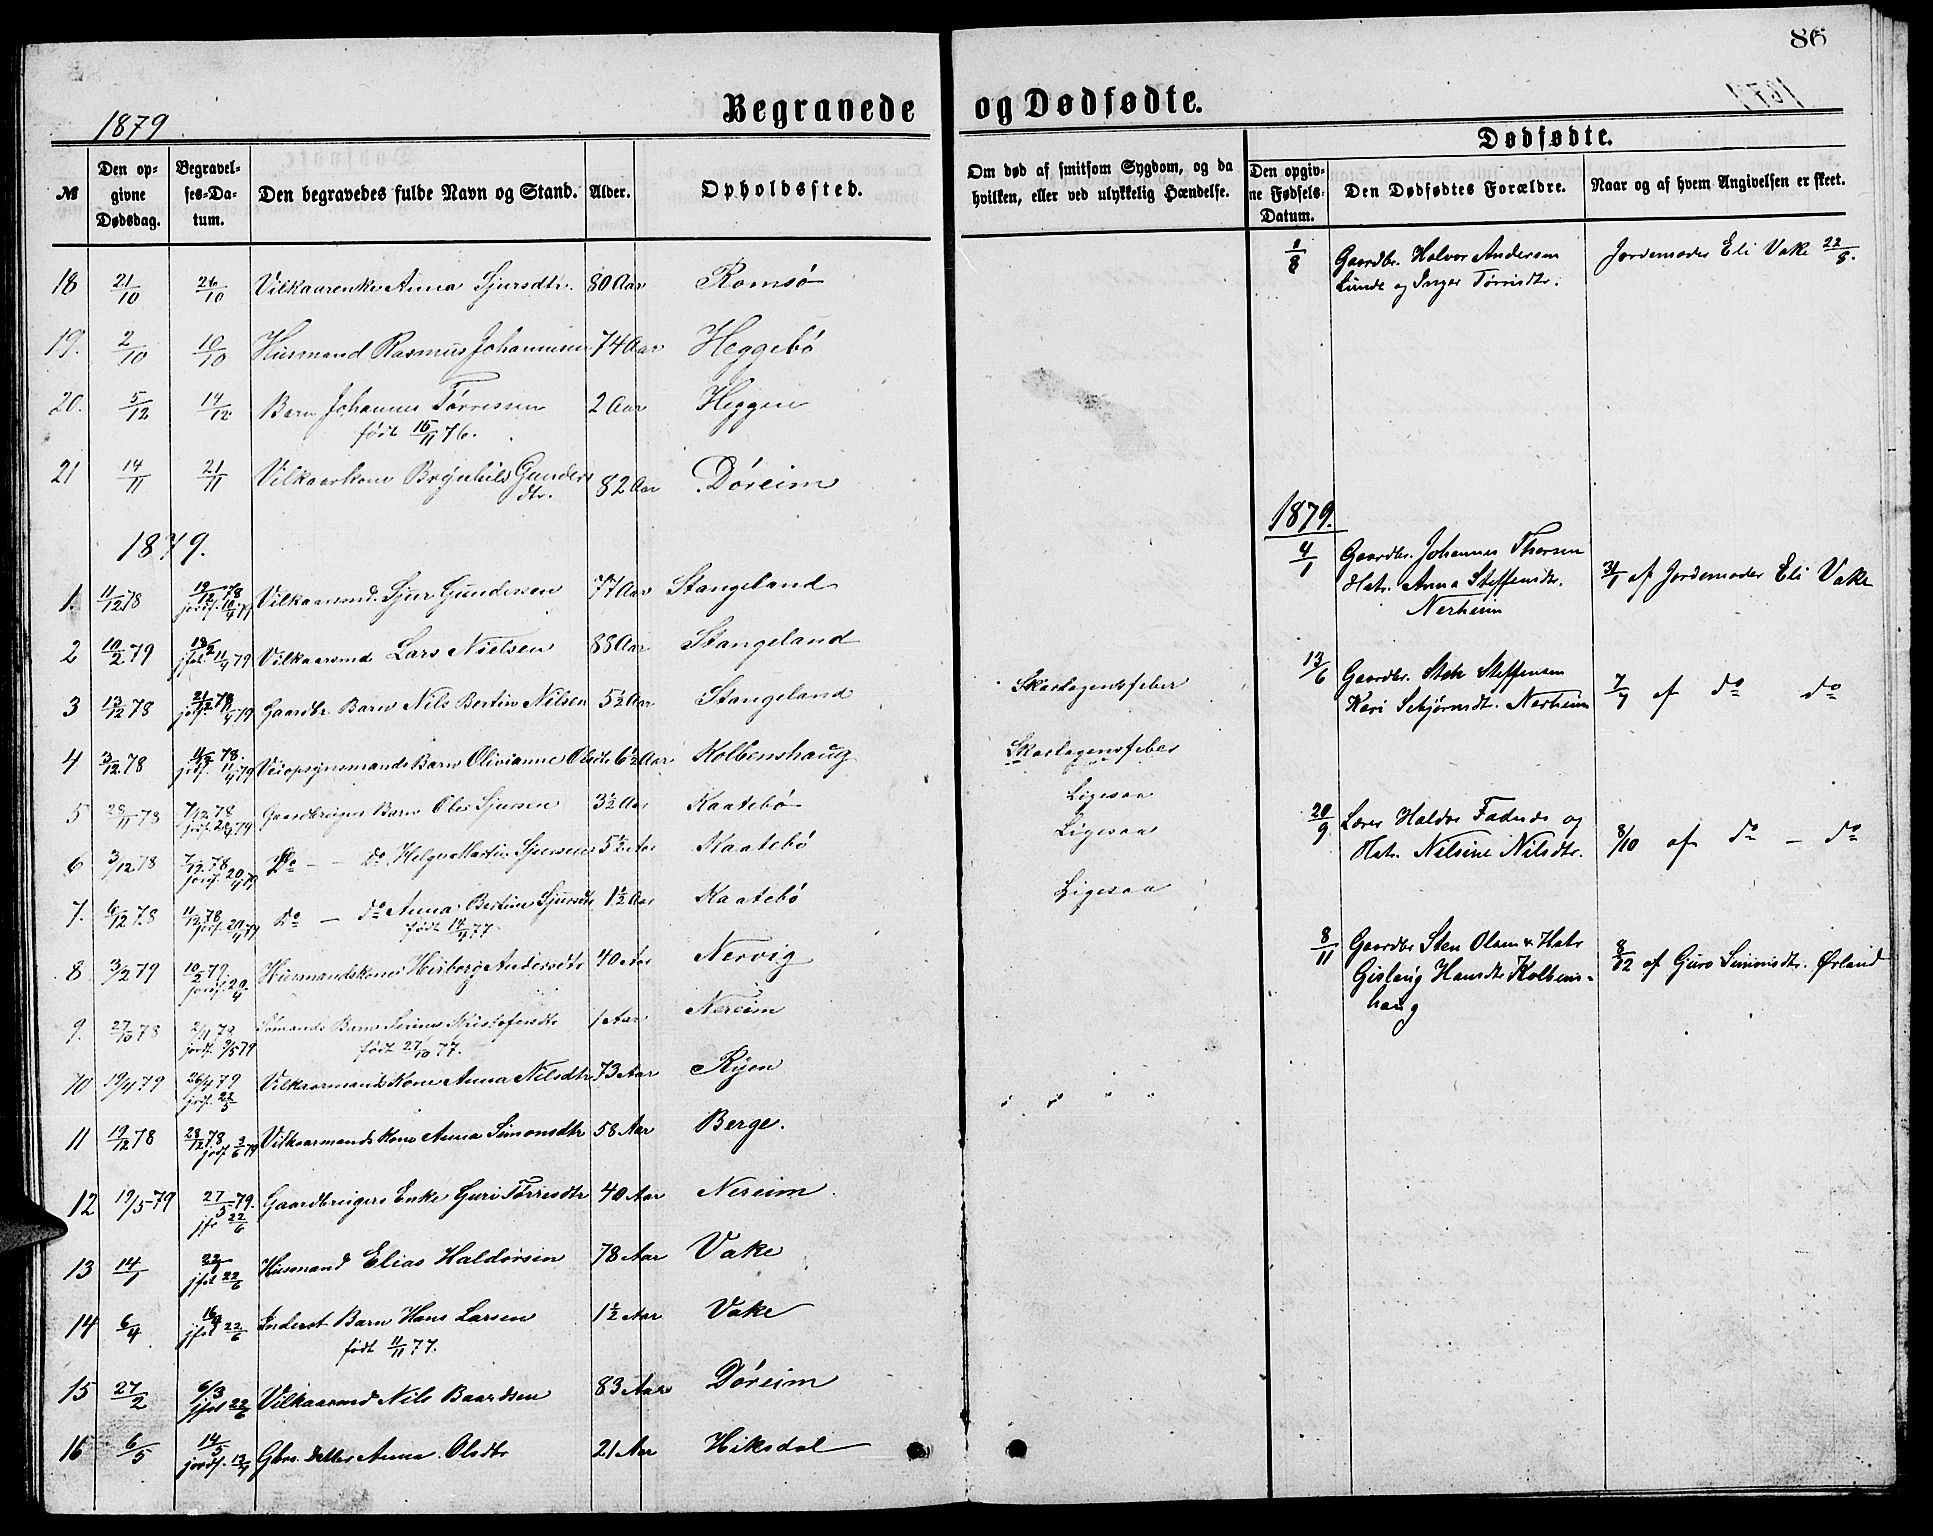 86
Begravede og Dødfødte.
1879
Dødfødte.
№ Den opgivne Dødsdag. Begravelses-Datum. Den begravedes fulde Navn og Stand. Alder. Opholdssted. Om død af smitsom Sygdom, og da hvilken, eller ved ulykkelig Hændelse. Den opgivne Fødsels-Datum. Den Dødfødtes Forældre. Naar og af hvem Angivelsen er skeet.
18 21/10 26/10 Vilkaarenke Anna Sjursdtr. 80 Aar Romsø
19. 2/10 10/10 Husmand Rasmus Johannesen 74 Aar Heggebø
20. 5/12 14/12 Barn Johannes Tørressen 2 Aar Heggen
født 15/11 76.
21 14/11 21/11 Vilkaarkone Brynhild Gunders dtr. 82 Aar Døreim
1879.
1. 11/12 78 19/12 78 Vilkaarsmd. Sjur Gundersen 77 Aar Stangeland
2 10/2 79 jfst 11/4 79 Vilkaarsmd Lars Nielsen 88 Aar Stangeland
3 13/12 78 21/12 78 Gaardbr. Barn Nils Bertin Nilsen 5½ Aar Stangeland Skarlagensfeber
4 3/12 78 jordf. 11/4 79 Veiopsynsmands Barn Olivianne Olsdtr 6½ Aar Kolbenshaug Skarlagensfeber
5 28/11 78 7/12 78 Gaardbrugers Barn Ole Sjursen 3½ Aar Kaatebø Ligesaa
6 3/12 78 7/12 78 jordf. 20/4 79 Do — do Helge Martin Sjursen 5½ Aar Kaatebø Ligesaa
7. 6/12 78 11/12 78 jordf. 20/4 79 do — do Anna Bertine Sjursdtr 1½ Aar Kaatebø Ligesaa
født 77
8 3/2 79 10/2 79 jordf. 20/4 Husmandskone Herborg Andersdtr 40 Aar Nervig
9. 27/10 78 2/11 78 jordf. 3/5 79 Sømands Barn Serine Kristofersdtr 1 Aar Nereim
født 27/10 77.
10 19/4 79 26/4 79 jordf. 22/5 Vilkaarmands Kone Anna Nilsdtr 73 Aar Ryen
11 19/12 78 28/12 78 jordf. 2/6 79 Vilkaarmands Kone Anna Simonsdtr 58 Aar Berge.
12 19/5 79 27/5 79. jfst 22/6 Gaardbrugers Enke Guri Tørresdtr 40 Aar Nereim
13 14/1 jfst 22/6 Husmand Elias Haldorsen 78 Aar Vake
14 6/4 jfst 22/6 Inderst Barn Hans Larsen 1½ Aar Vake
født 11/11 77.
15 27/2 6/3 jfst 22/6 Vilkaarsmd Nils Baardsen 83 Aar Døreim
16 6/5 14/5 jordf. 13/7 Gbrs. Datter Anna Olsdtr 21 Aar Hiksdal
1/8 Gaardbr. Halvor Andersen Jordemoder Eli Vake 22/8.
Lunde og Inger Tørrisdtr.
1879.
4/1 Gaardbr. Johannes Thorsen
Hstr. Anna Steffensdtr. 31/1 af Jordemoder Eli Vake
Nerheim
13/6 Gaardbr. Sten Steffensen
Kari Sebjørnsdtr. Nerheim 7/7 af do do
20/9 Lærer Haldor Fadnes og
Hstr. Nilsine Nilsdtr. 8/10 af do — do
8/11 Gaardbr Sten Olsen & Hstr
Gislaug Hansdtr Kolbens- 8/12 af Guro Simonsdtr. Ørland
haug